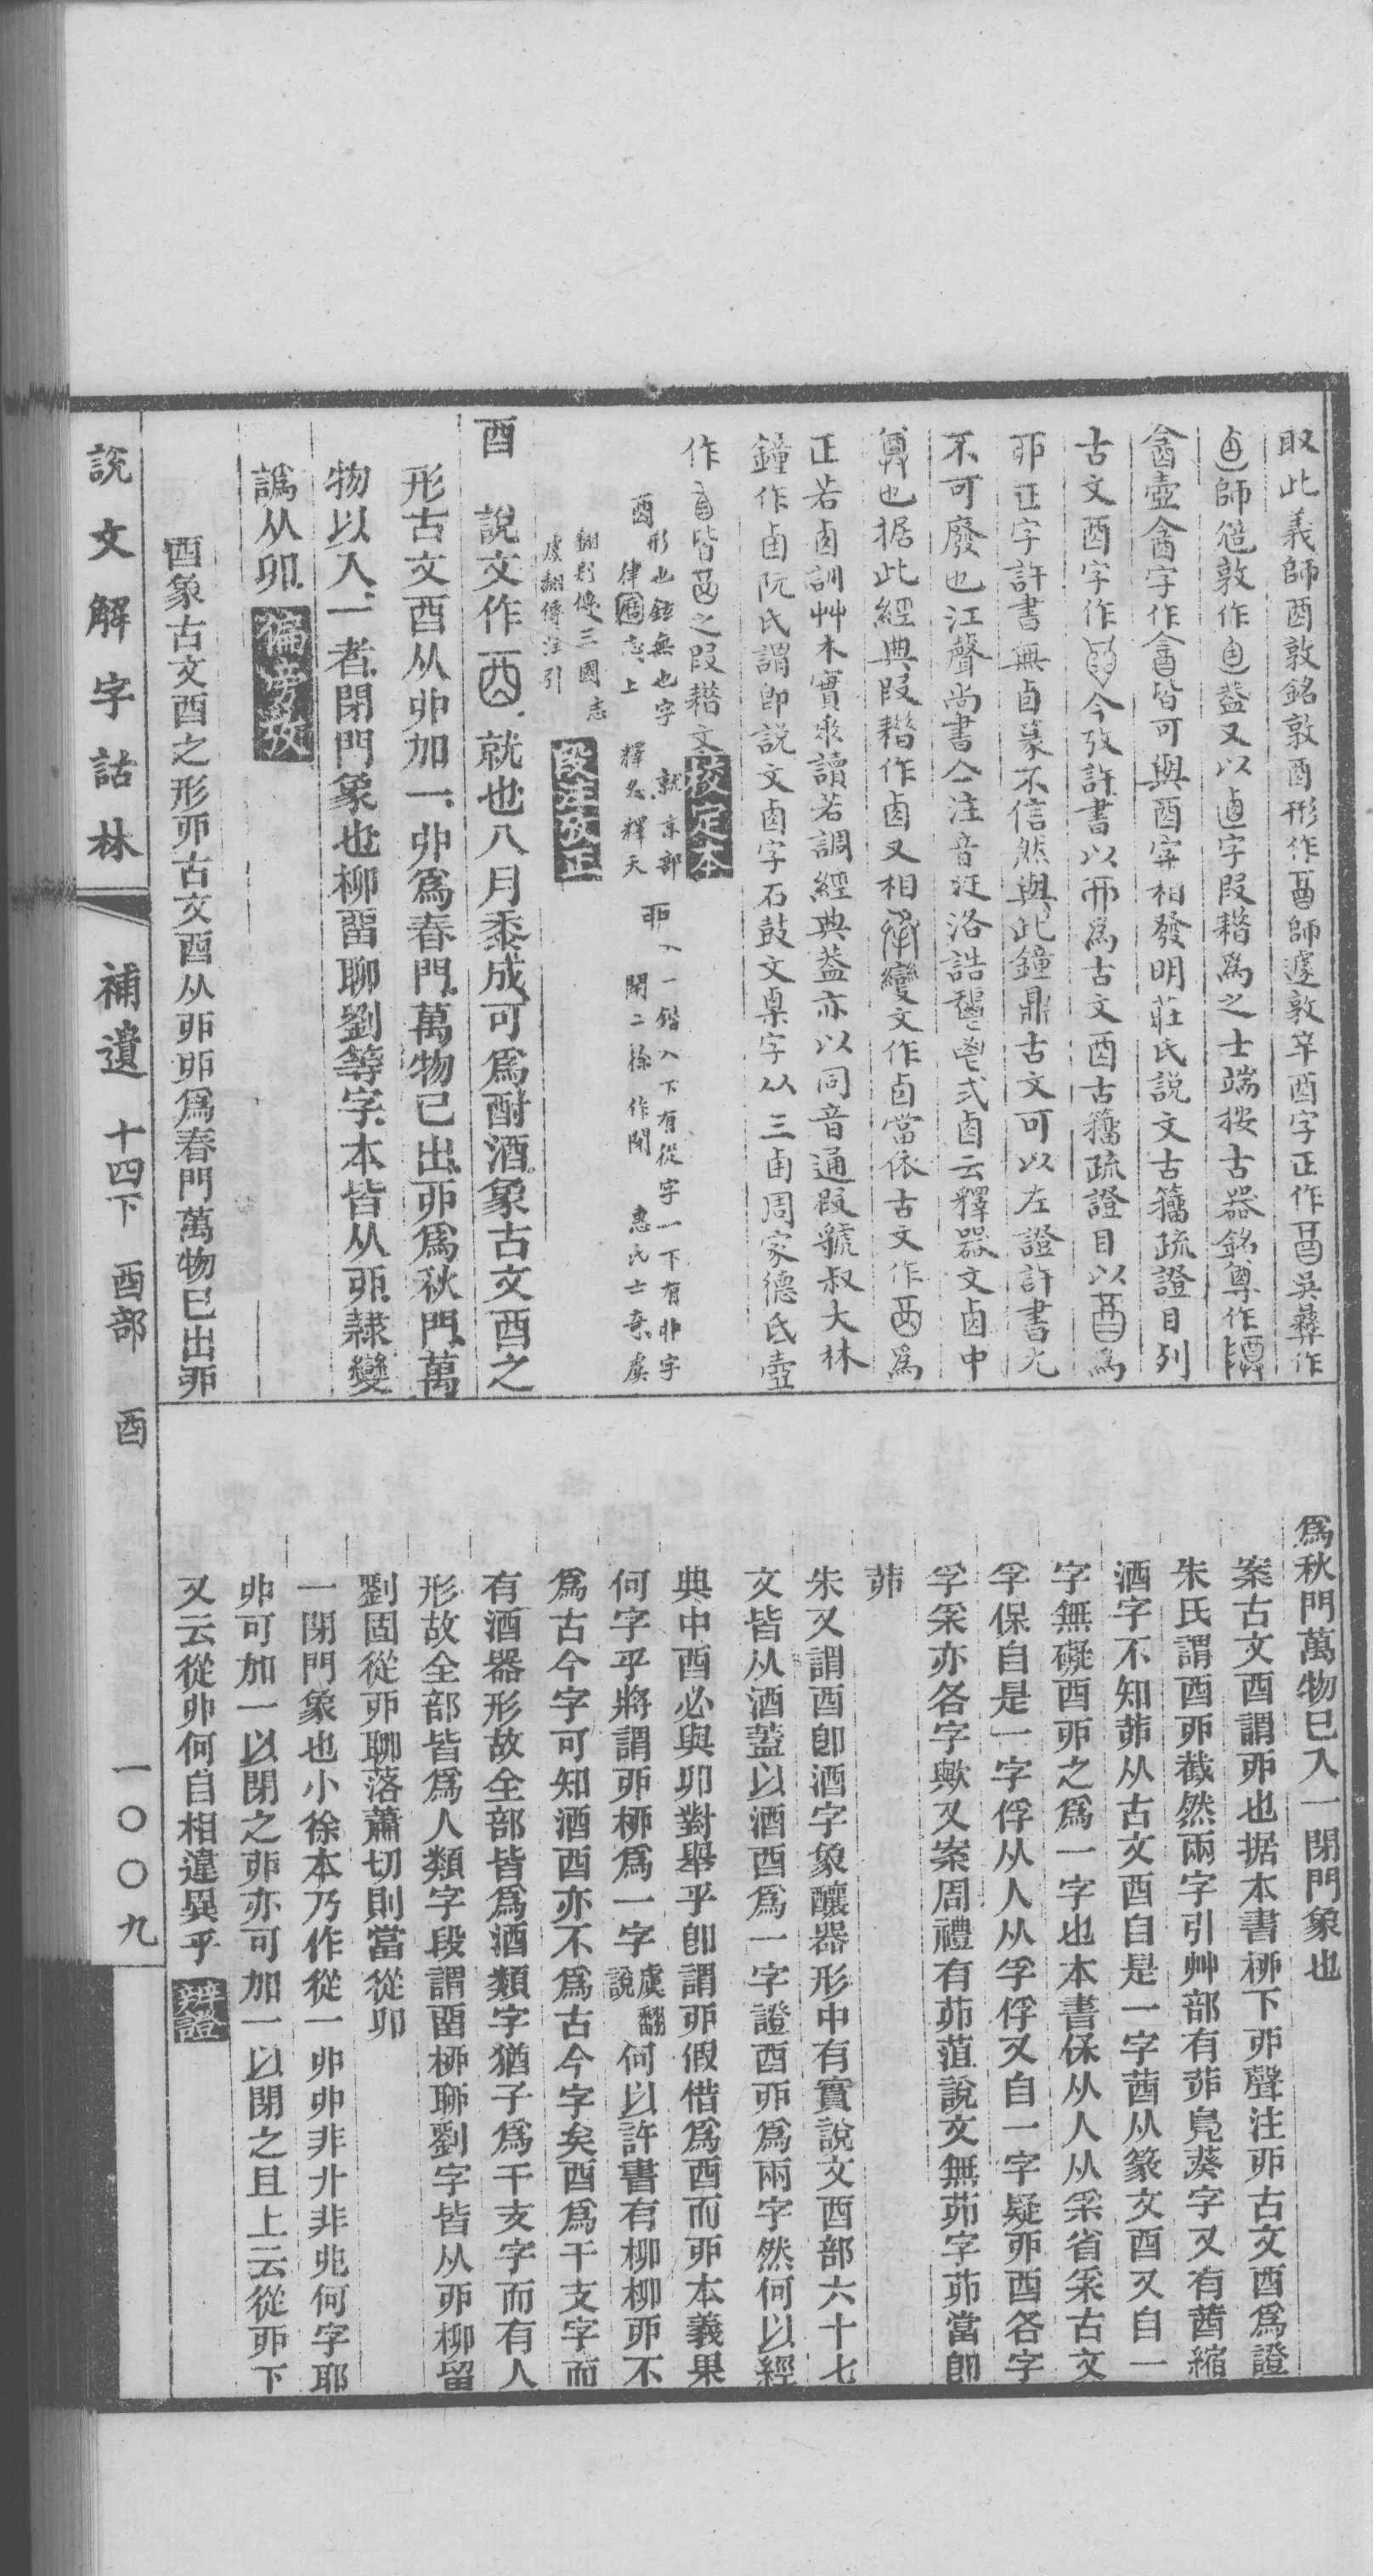 取此義師酉敦銘敦酉形作師遽敦辛酉字正作吳彝作
師敦作蓋又以逌字叚藉爲之士端按古器銘尊作
壺字作皆可與酉字相發明莊氏說文古籀疏證目列
古文酉字作今攷許書以丣爲古文酉古籀疏證目以爲
丣正字許書無卣篆不信然與此鐘鼎古文可以左證許書尤
不可廢也江聲尚書亼注音疋洛誥秬鬯弍卣云釋器文卣中
尊也据此經典叚藉作卣又相變文作卣當依古文作爲
正若卤訓艸木實𠂹讀若調經典蓋亦以同音通叚虢叔大林
鐘作卤阮氏謂卽說文卤字石鼓文㮚字从三卤周家德氏壺
作皆之叚藉文校定本
酉形也鉉無也字　就京部　丣入一鍇入下有從字一下有非字
律曆志上　釋名釋天　閉二徐作閉　惠氏士奇虞
翻別傳三國志
虞翻傳注引　段注攷正
酉　說文作就也八月黍成可爲酎酒象古文酉之
形古文酉从丣加一丣爲春門萬物已出丣爲秋門萬
物以入一者閉門象也柳畱聊劉等字本皆从丣隸變
譌从卯　偏旁攷
酉象古文酉之形丣古文酉从丣丣爲春門萬物已出丣
說文解字詁林　補遺　十四下　酉部　酉　一〇〇九
爲秋門萬物已入一閉門象也
案古文酉謂丣也据本書桺下丣聲注丣古文酉爲證
朱氏謂酉丣截然兩字引艸部有茆鳧葵字又有莤縮
酒字不知茆从古文酉自是一字莤从篆文酉又自一
字無礙酉丣之爲一字也本書保从人从𤓽省𤓽古文
孚保自是一字俘从人从孚俘又自一字疑丣酉各字
孚𤓽亦各字歟又案周禮有茆菹說文無茆字茆當卽
茆
朱又謂酉卽酒字象釀器形中有實說文酉部六十七
文皆从酒蓋以酒酉爲一字證酉丣爲兩字然何以經
典中酉必與卯對舉乎卽謂丣假借爲酉而丣本義果
何字乎將謂丣桺爲一字虞翻說何以許書有柳柳丣不
爲古今字可知酒酉亦不爲古今字矣酉爲干支字而
有酒器形故全部皆爲酒類字猶子爲干支字而有人
形故全部皆爲人類字段謂畱桺聊劉字皆从丣柳留
劉固從丣聊落蕭切則當從卯
一閉門象也小徐本乃作從一卯卯非廾非兆何字耶
丣可加一以閉之丣亦可加一以閉之且上云從丣下
又云從丣何自相違異乎　辨證